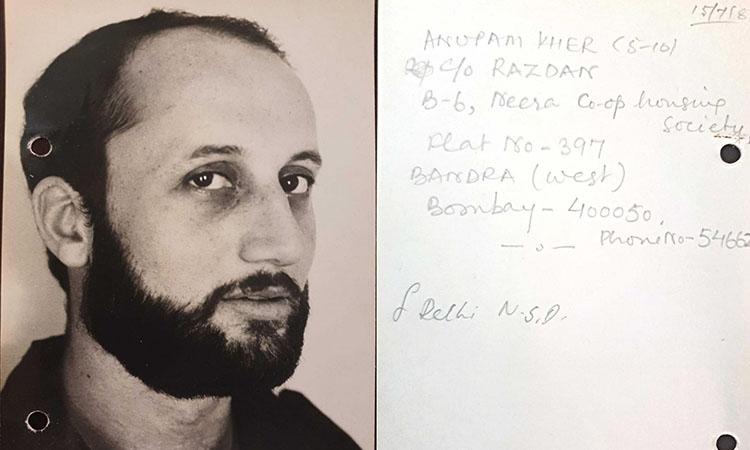 15/7/8
ANUPAM KHER (5-10)
C/o RAZDAN
B-6, Neera Co-op housing
Society,
Flat No - 397
BANDRA (West)
Bombay - 400050.
Phone No - 54662
Delhi N.S.D.